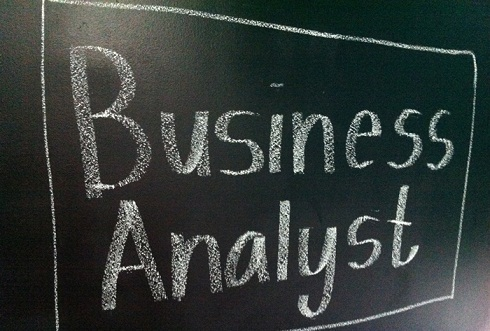 Business
Analyst